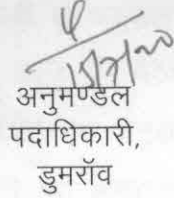 अनुमण्डल
पदाधिकारी,
डुमराॅव